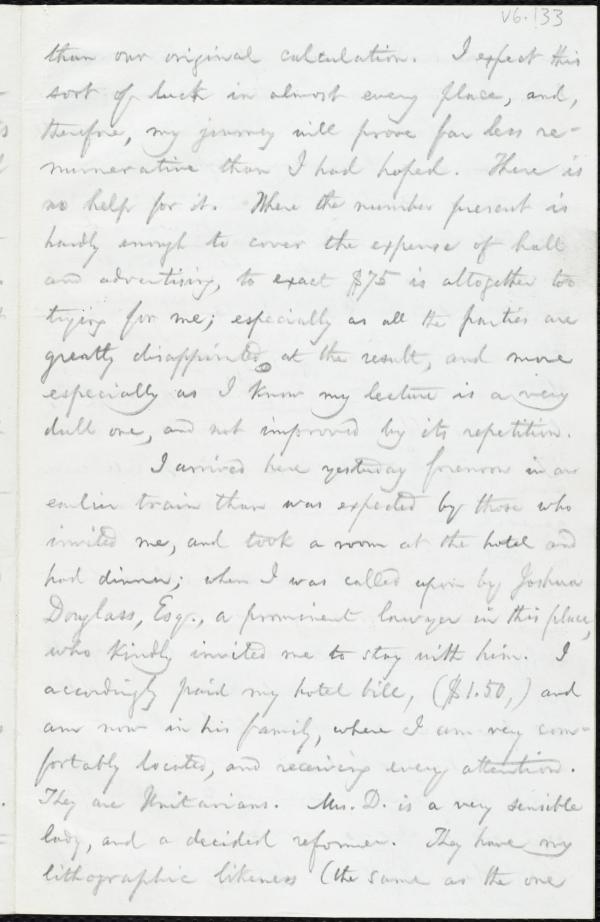 V6.133
than our original calculation. I expect this
sort of luck in almost every place, and,
therefore, my journey will prove far less re-
munerative than I had hoped. There is
no help for it. Where the number present is
hardly enough to cover the expense of hall
and advertising, to exact $75 is altogether too
trying for me; especially as all the parties are
greatly disappointed at the result, and more
especially as I know my lecture is a very
dull one, and not improved by its repetition.
I arrived here yesterday forenoon in an
earlier train than was expected by those who
invited me, and took a room at the hotel and
had dinner; when I was called upon by Joshua
Douglass, Esq., a prominent lawyer in this place,
who kindly invited me to stay with him. I
accordingly paid my hotel bill, ($1.50,) and
am now in his family, where I am very com-
fortably located, and receiving every attention.
They are Unitarians. Mrs. D. is a very sensible
lady, and a decided reformer. They have my
lithographic likeness (the same as the one